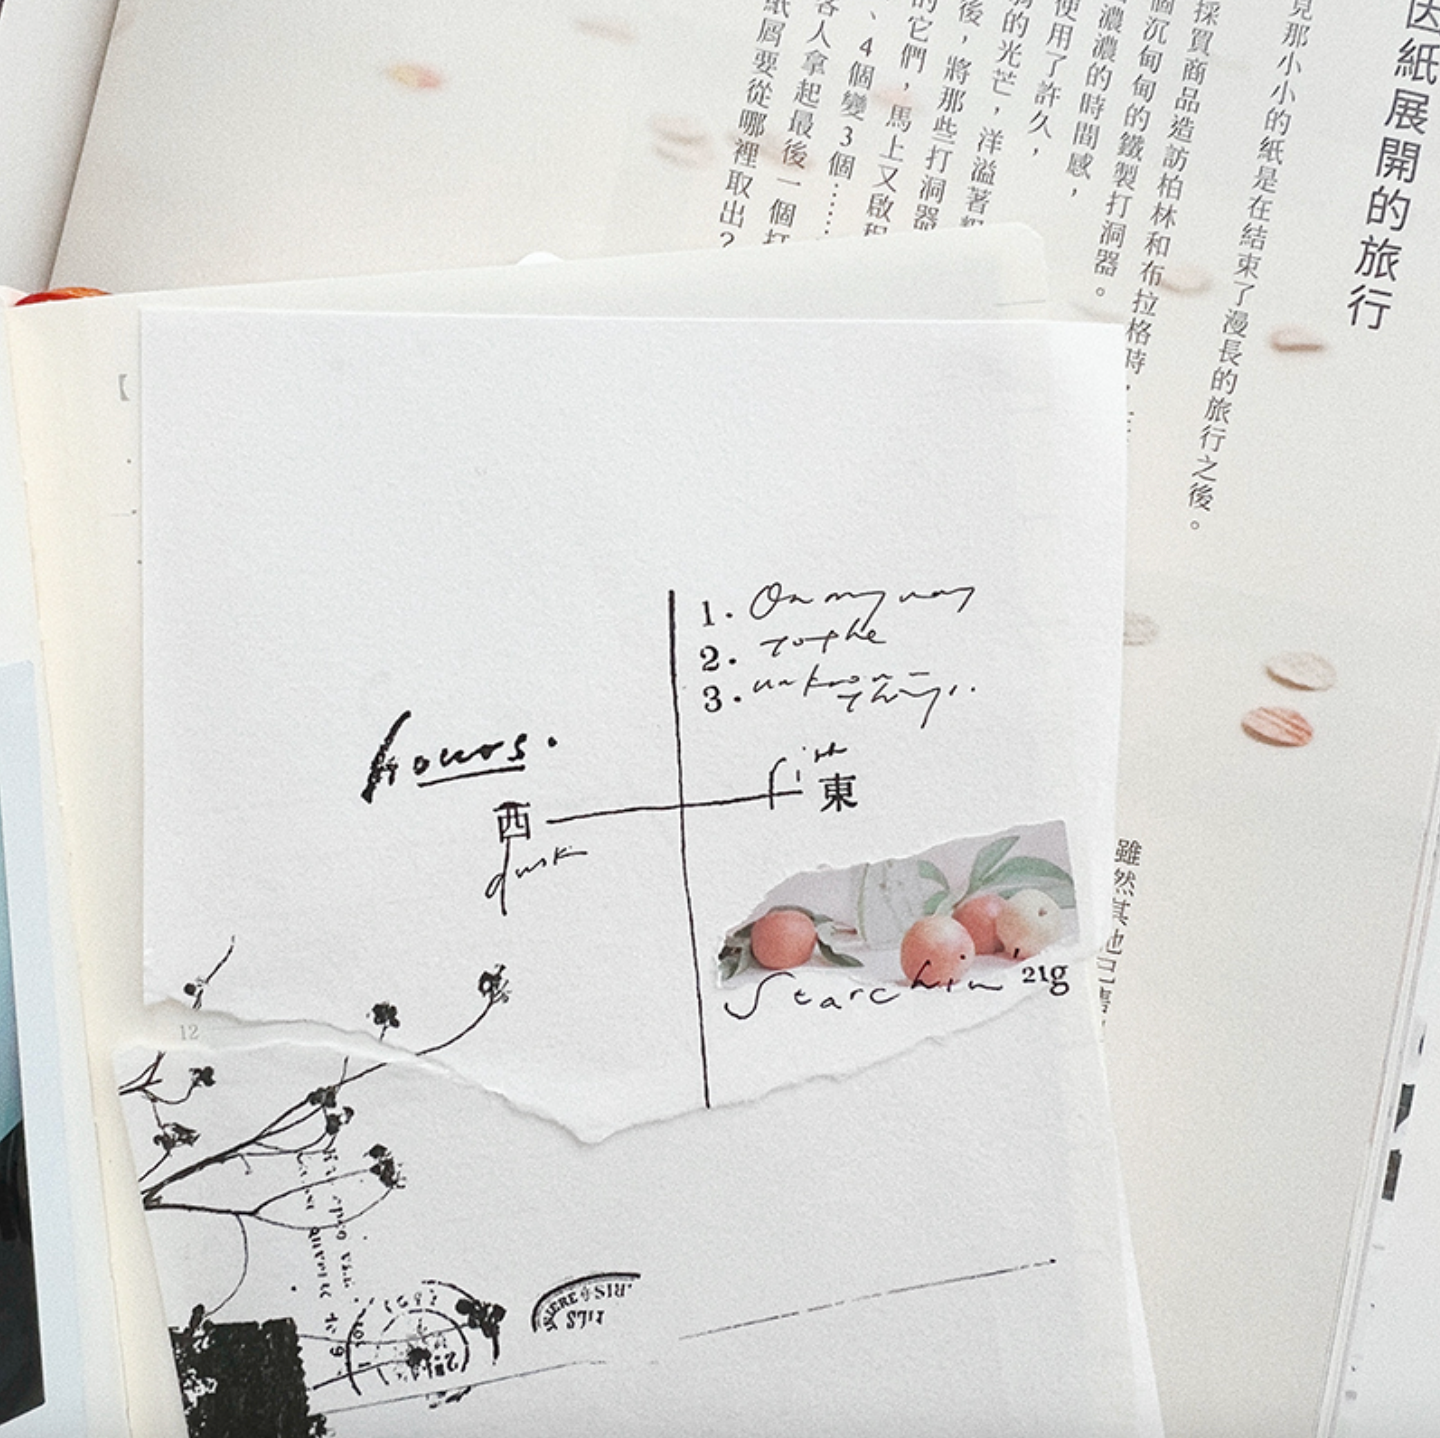 因紙展開的旅行
見那小小的紙是在結束了漫長的旅行之後。
採買商品造訪柏林和布拉格時，
個沉甸甸的鐵製打洞器。
濃濃的時間感，
使用了許久，
的光芒，洋溢著
後，將那些打洞器
的它們，馬上又啟程
、4個變3個……
客人拿起最後一個打
紙屑要從哪裡取出？
雖然其他已售
1. On my way
2. to the
3. unknown
things.
hours.
first
西
東
dusk
Starchin' 21g
12